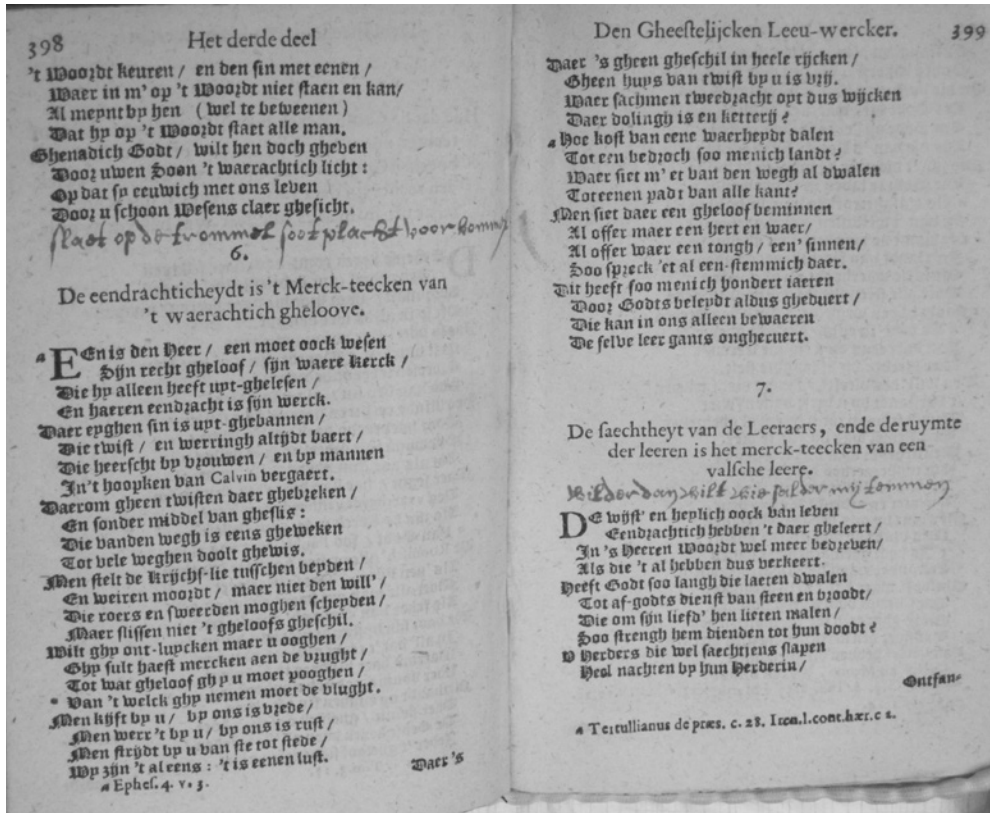 398 Het derde deel
't Woordt keuren / en den sin met eenen /
Waer in m' op 't Woordt niet staen en kan /
Al meynt by hen (wel te beweenen)
Dat hy op 't Woordt staet alle man.
Ghenadich Godt / wilt hen doch gheven
Door uwen Soon 't waerachtich licht :
Op dat sy eeuwich met ons leven
Door u schoon Wesens claer ghesicht.
slaet op de trommel
6.
De eendrachticheydt is 't Merck-teecken van
't waerachtich gheloove.
a EEn is den Heer / een moet oock wesen
Sijn recht gheloof / sijn waere Kerck /
Die hy alleen heeft uyt-ghelesen /
En haeren eendracht is sijn werck.
Daer eyghen sin is uyt-ghebannen /
Die twist / en werringh altijdt baert /
Die heerscht by vrouwen / en by mannen
In't hoopken van Calvin vergaert.
Daerom gheen twisten daer ghebreken /
En sonder middel van gheslis :
Die vanden wegh is eens gheweken
Tot vele weghen doolt ghewis.
Men stelt de Krijchs-lie tusschen beyden /
En weiren moordt / maer niet den will' /
Die roers en sweerden moghen scheyden /
Maer slissen niet 't gheloofs gheschil.
Wilt ghy ont-luycken maer u ooghen /
Ghy sult haest mercken aen de vrught /
Tot wat gheloof ghy u moet pooghen /
* Van 't welck ghy nemen moet de vlught.
Men kijft by u / by ons is vrede /
Men werr 't by u / by ons is rust /
Men strijdt by u van ste tot stede /
Wy zijn 't al eens : 't is eenen lust.
Daer's
a Ephes. 4. v. 5.
Den Gheestelijcken Leeu-wercker. 399
Daer 's gheen gheschil in heele rijcken /
Gheen huys van twist by u is vrij.
Waer sachmen tweedracht oyt dus wijcken
Daer dolingh is en ketterij ?
a Hoe kost van eene waerheydt dalen
Tot een bedroch soo menich landt ?
Waer siet m' er van den wegh al dwalen
Tot eenen padt van alle kant ?
Men siet daer een gheloof beminnen
Al offer maer een hert en waer /
Al offer waer een tongh / een' sinnen /
Soo spreck 'et al een-stemmich daer.
Dit heeft soo menich hondert iaeren
Door Godts beleydt aldus gheduert /
Die kan in ons alleen bewaeren
De selve leer gants onghecuert.
7.
De saechtheyt van de Leeraers, ende de ruymte
der leeren is het merck-teecken van een
valsche leere.
wilder dan wilt wie salder mij temmen
DE wijst' en heylich oock van leven
Eendrachtich hebben 't daer gheleert /
In 's Heeren Woordt wel meer bedreven /
Als die 't al hebben dus verkeert.
Heeft Godt soo langh die laeten dwalen
Tot af-godts dienst van steen en broodt /
Die om sijn liefd' hen lieten malen /
Soo strengh hem dienden tot hun doodt ?
O Herders die wel saechtjens slapen
Heel nachten by hun Herderin /
Ontfan-
a Tertullianus de præs. c. 28. Iren. l. cont. hær. c 2.